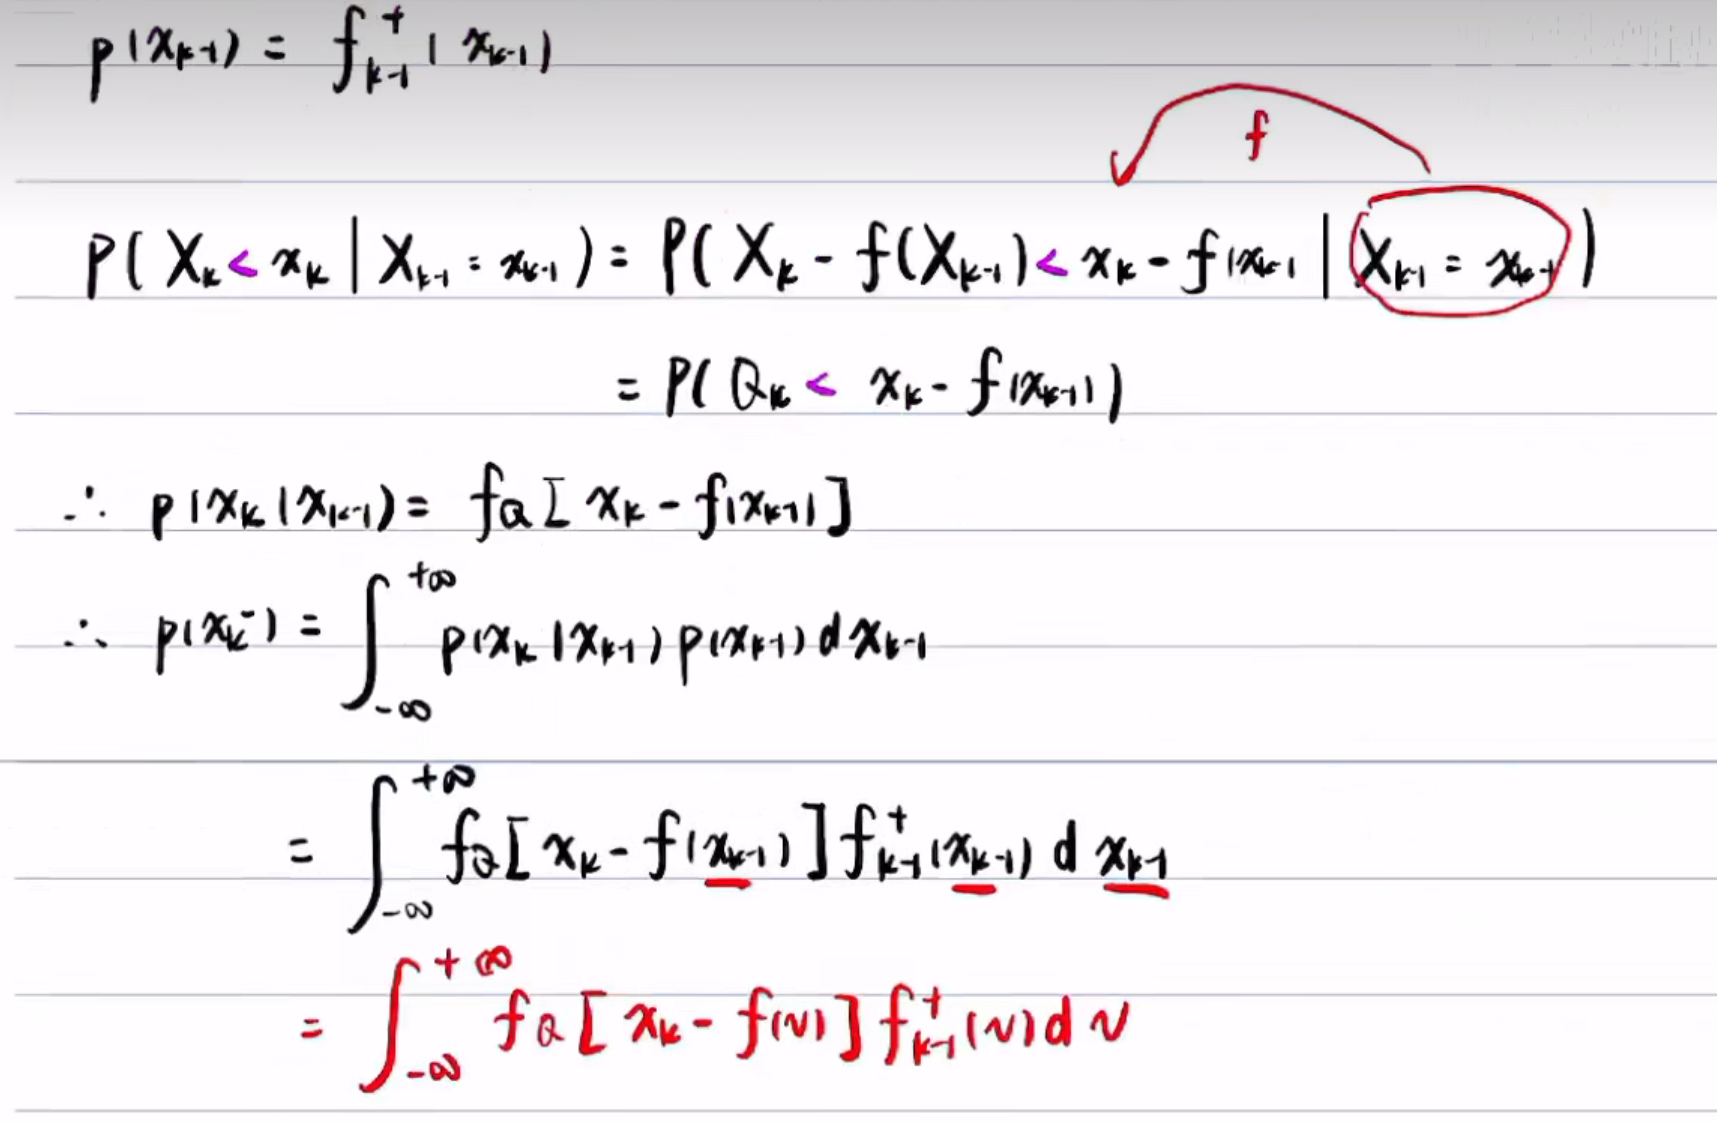 p(x_{k-1}) = f_{k-1}^+(x_{k-1})
f
P(X_k < x_k | X_{k-1} = x_{k-1}) = P(X_k - f(X_{k-1}) < x_k - f(x_{k-1} | X_{k-1} = x_{k-1})
= P(Q_k < x_k - f(x_{k-1}))
∴ p(x_k | x_{k-1}) = f_Q[x_k - f(x_{k-1})]
∴ p(x_k^-) = ∫_{-∞}^{+∞} p(x_k | x_{k-1}) p(x_{k-1}) d x_{k-1}
= ∫_{-∞}^{+∞} f_Q[x_k - f(x_{k-1})] f_{k-1}^+(x_{k-1}) d x_{k-1}
= ∫_{-∞}^{+∞} f_Q[x_k - f(v)] f_{k-1}^+(v) d v